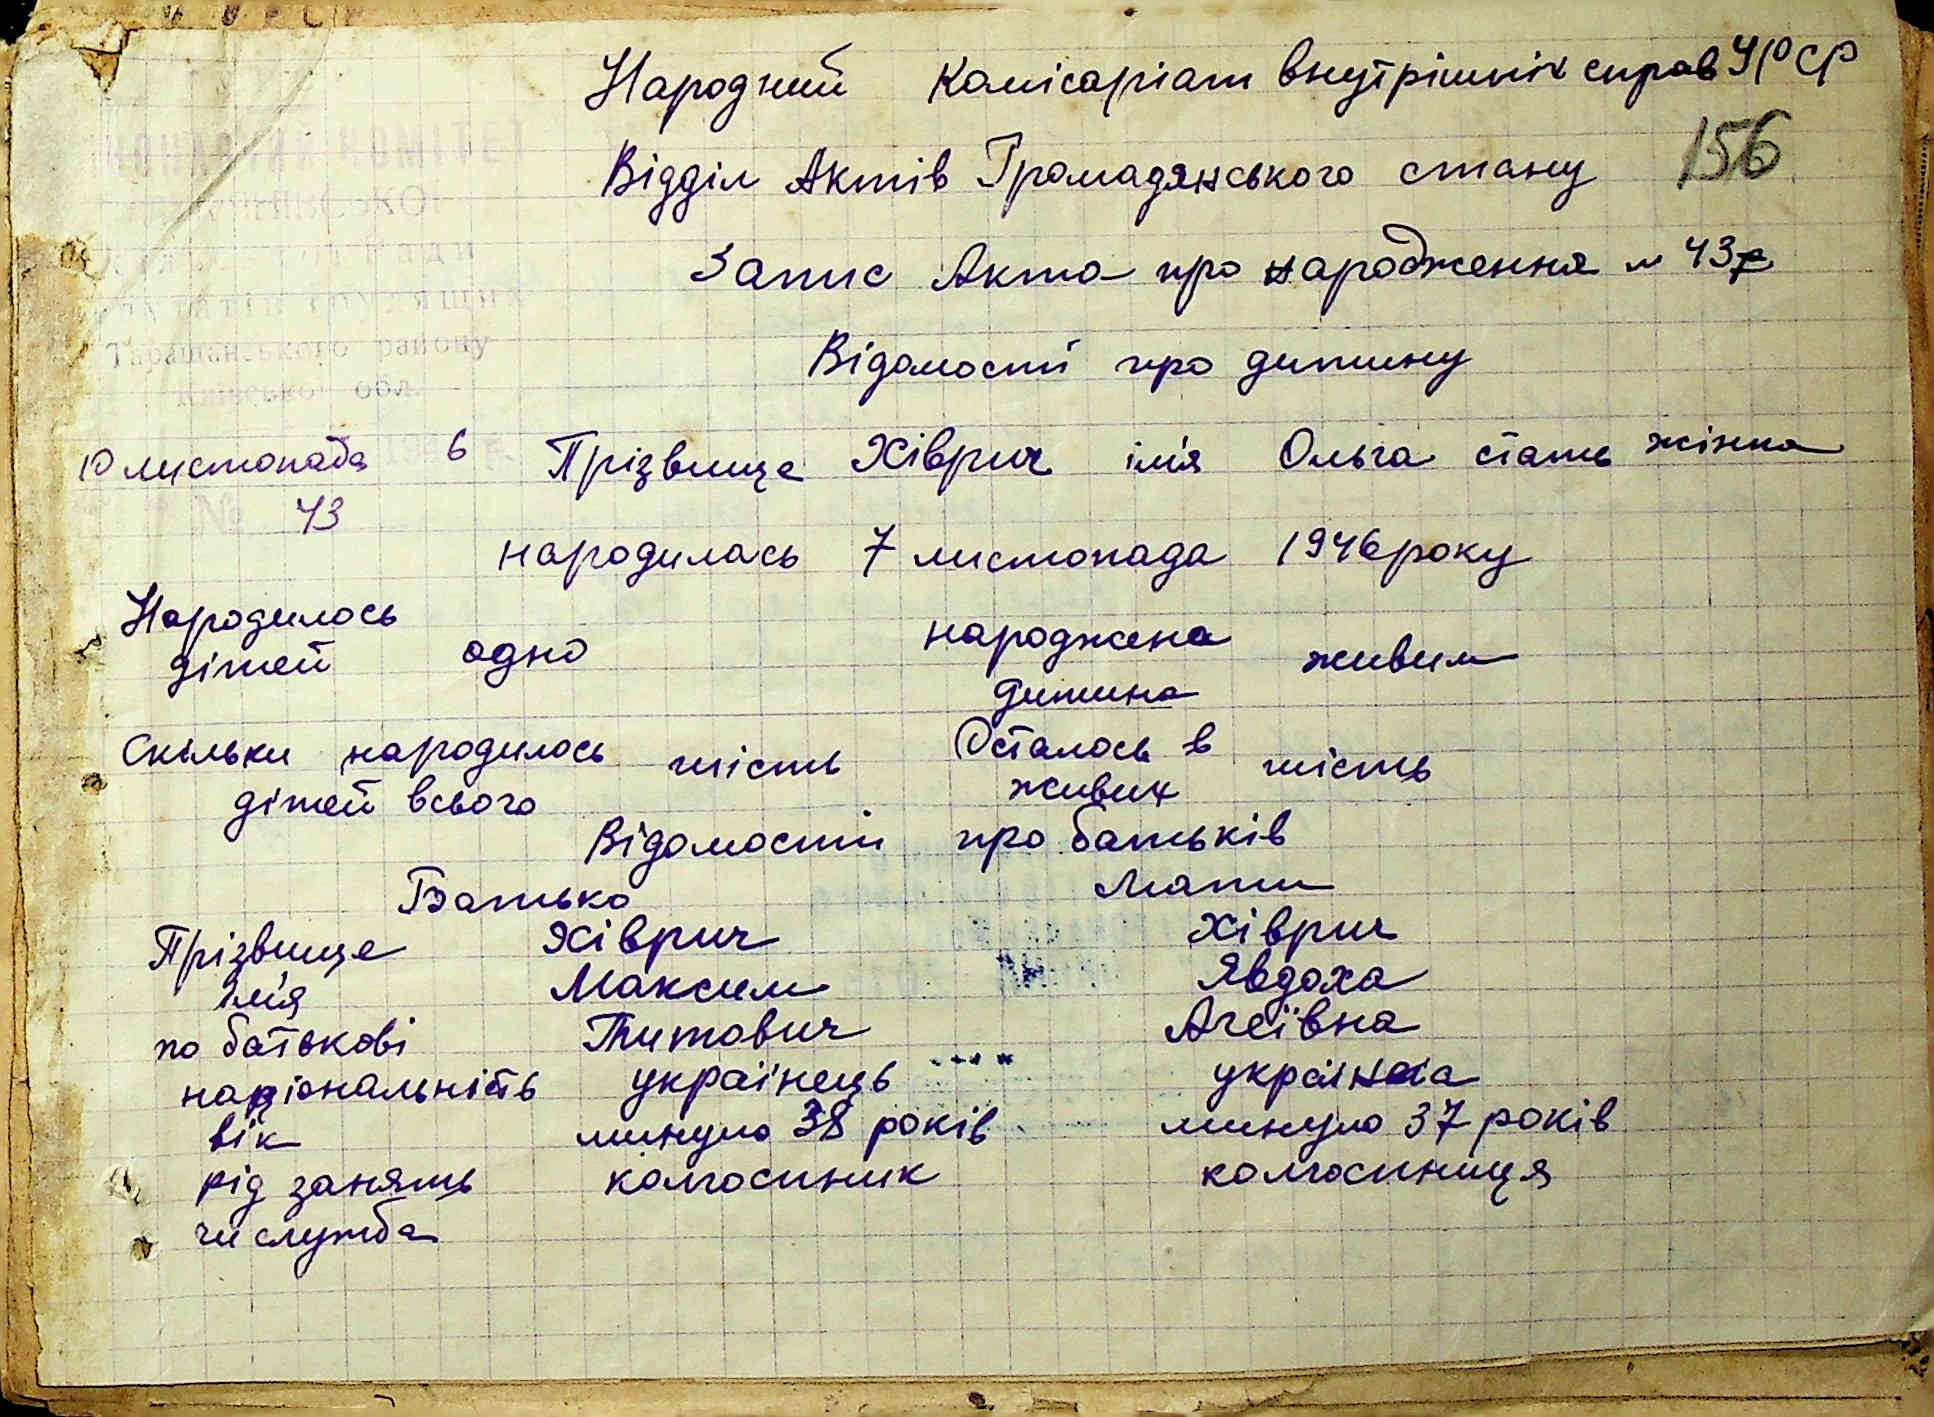 Народний Комісаріат внутрішніх справ УРСР
156
Відділ Актів Громадянського стану
Запис Акта про народження № 43
Відомості про дитину
КОМІТЕТ
Таращанського району
Київської обл.
10 листопада 1946 р.
№ 43
Прізвище Хіврич ім'я Ольга стать жінка
народилась 7 листопада 1946 року
Народилось дітей одно народжена дитина живим
Скільки народилось дітей всього шість Осталось в живих шість
Відомості про батьків
Батько Мати
Прізвище Хіврич Хіврич
Ім'я Максим Явдоха
по батькові Титович Агеївна
національність українець українка
вік минуло 38 років минуло 37 років
рід занять колгоспник колгоспниця
чи служба